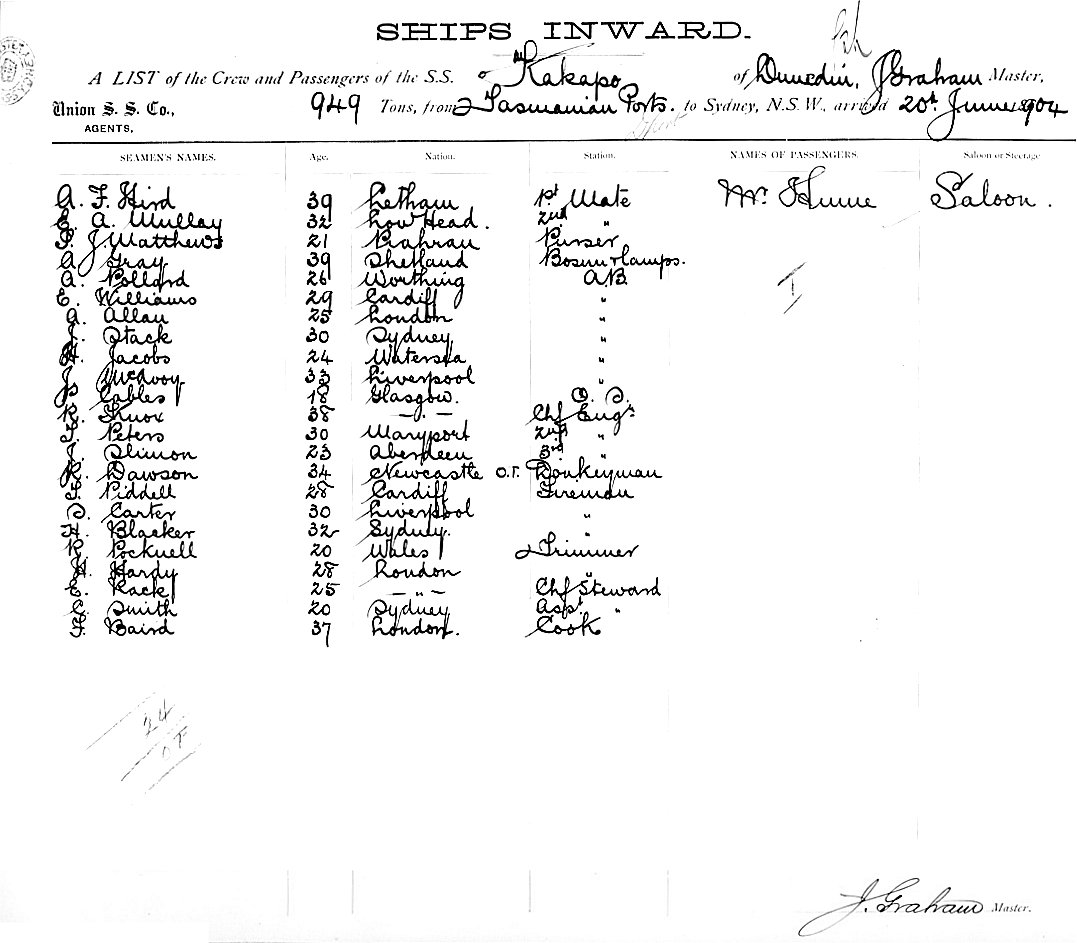 SHIPS INWARD.
A LIST of the Crew and Passengers of the S.S. "Kakapo of Dunedin, J Graham Master,
Union S. S. Co., 949 Tons, from Tasmanian Ports. to Sydney, N.S.W., arrived 20th June 1904
AGENTS,
SEAMEN'S NAMES. Age. Nation. Station. NAMES OF PASSENGERS. Saloon or Steerage
A. F. Hird 39 Letham 1st Mate Mr. Hume Saloon.
E. A. Mullay 32 Low Head. 2nd "
P. J. Matthews 21 Prahran Purser
A. Gray 39 Shetland Bosun & Lamps.
A. Pollard 26 Worthing A.B. 1
E. Williams 29 Cardiff "
A. Allan 25 London "
J. Stack 30 Sydney "
H. Jacobs 24 Watersea "
J. McAvoy 33 Liverpool "
J. Cables 18 Glasgow. O. S.
R. Knox 38 — " — Chf Engr
T. Peters 30 Maryport 2nd "
J. Slimon 23 Aberdeen 3rd "
R. Dawson 34 Newcastle O.T. Donkeyman
F. Piddell 28 Cardiff Fireman
S. Carter 30 Liverpool "
H. Blacker 32 Sydney. "
R. Pocknell 20 Wales Trimmer
H. Hardy 28 London "
E. Rack 25 — " — Chf Steward
C. Smith 20 Sydney Asst. "
F. Baird 37 London. Cook
24
J. Graham Master.